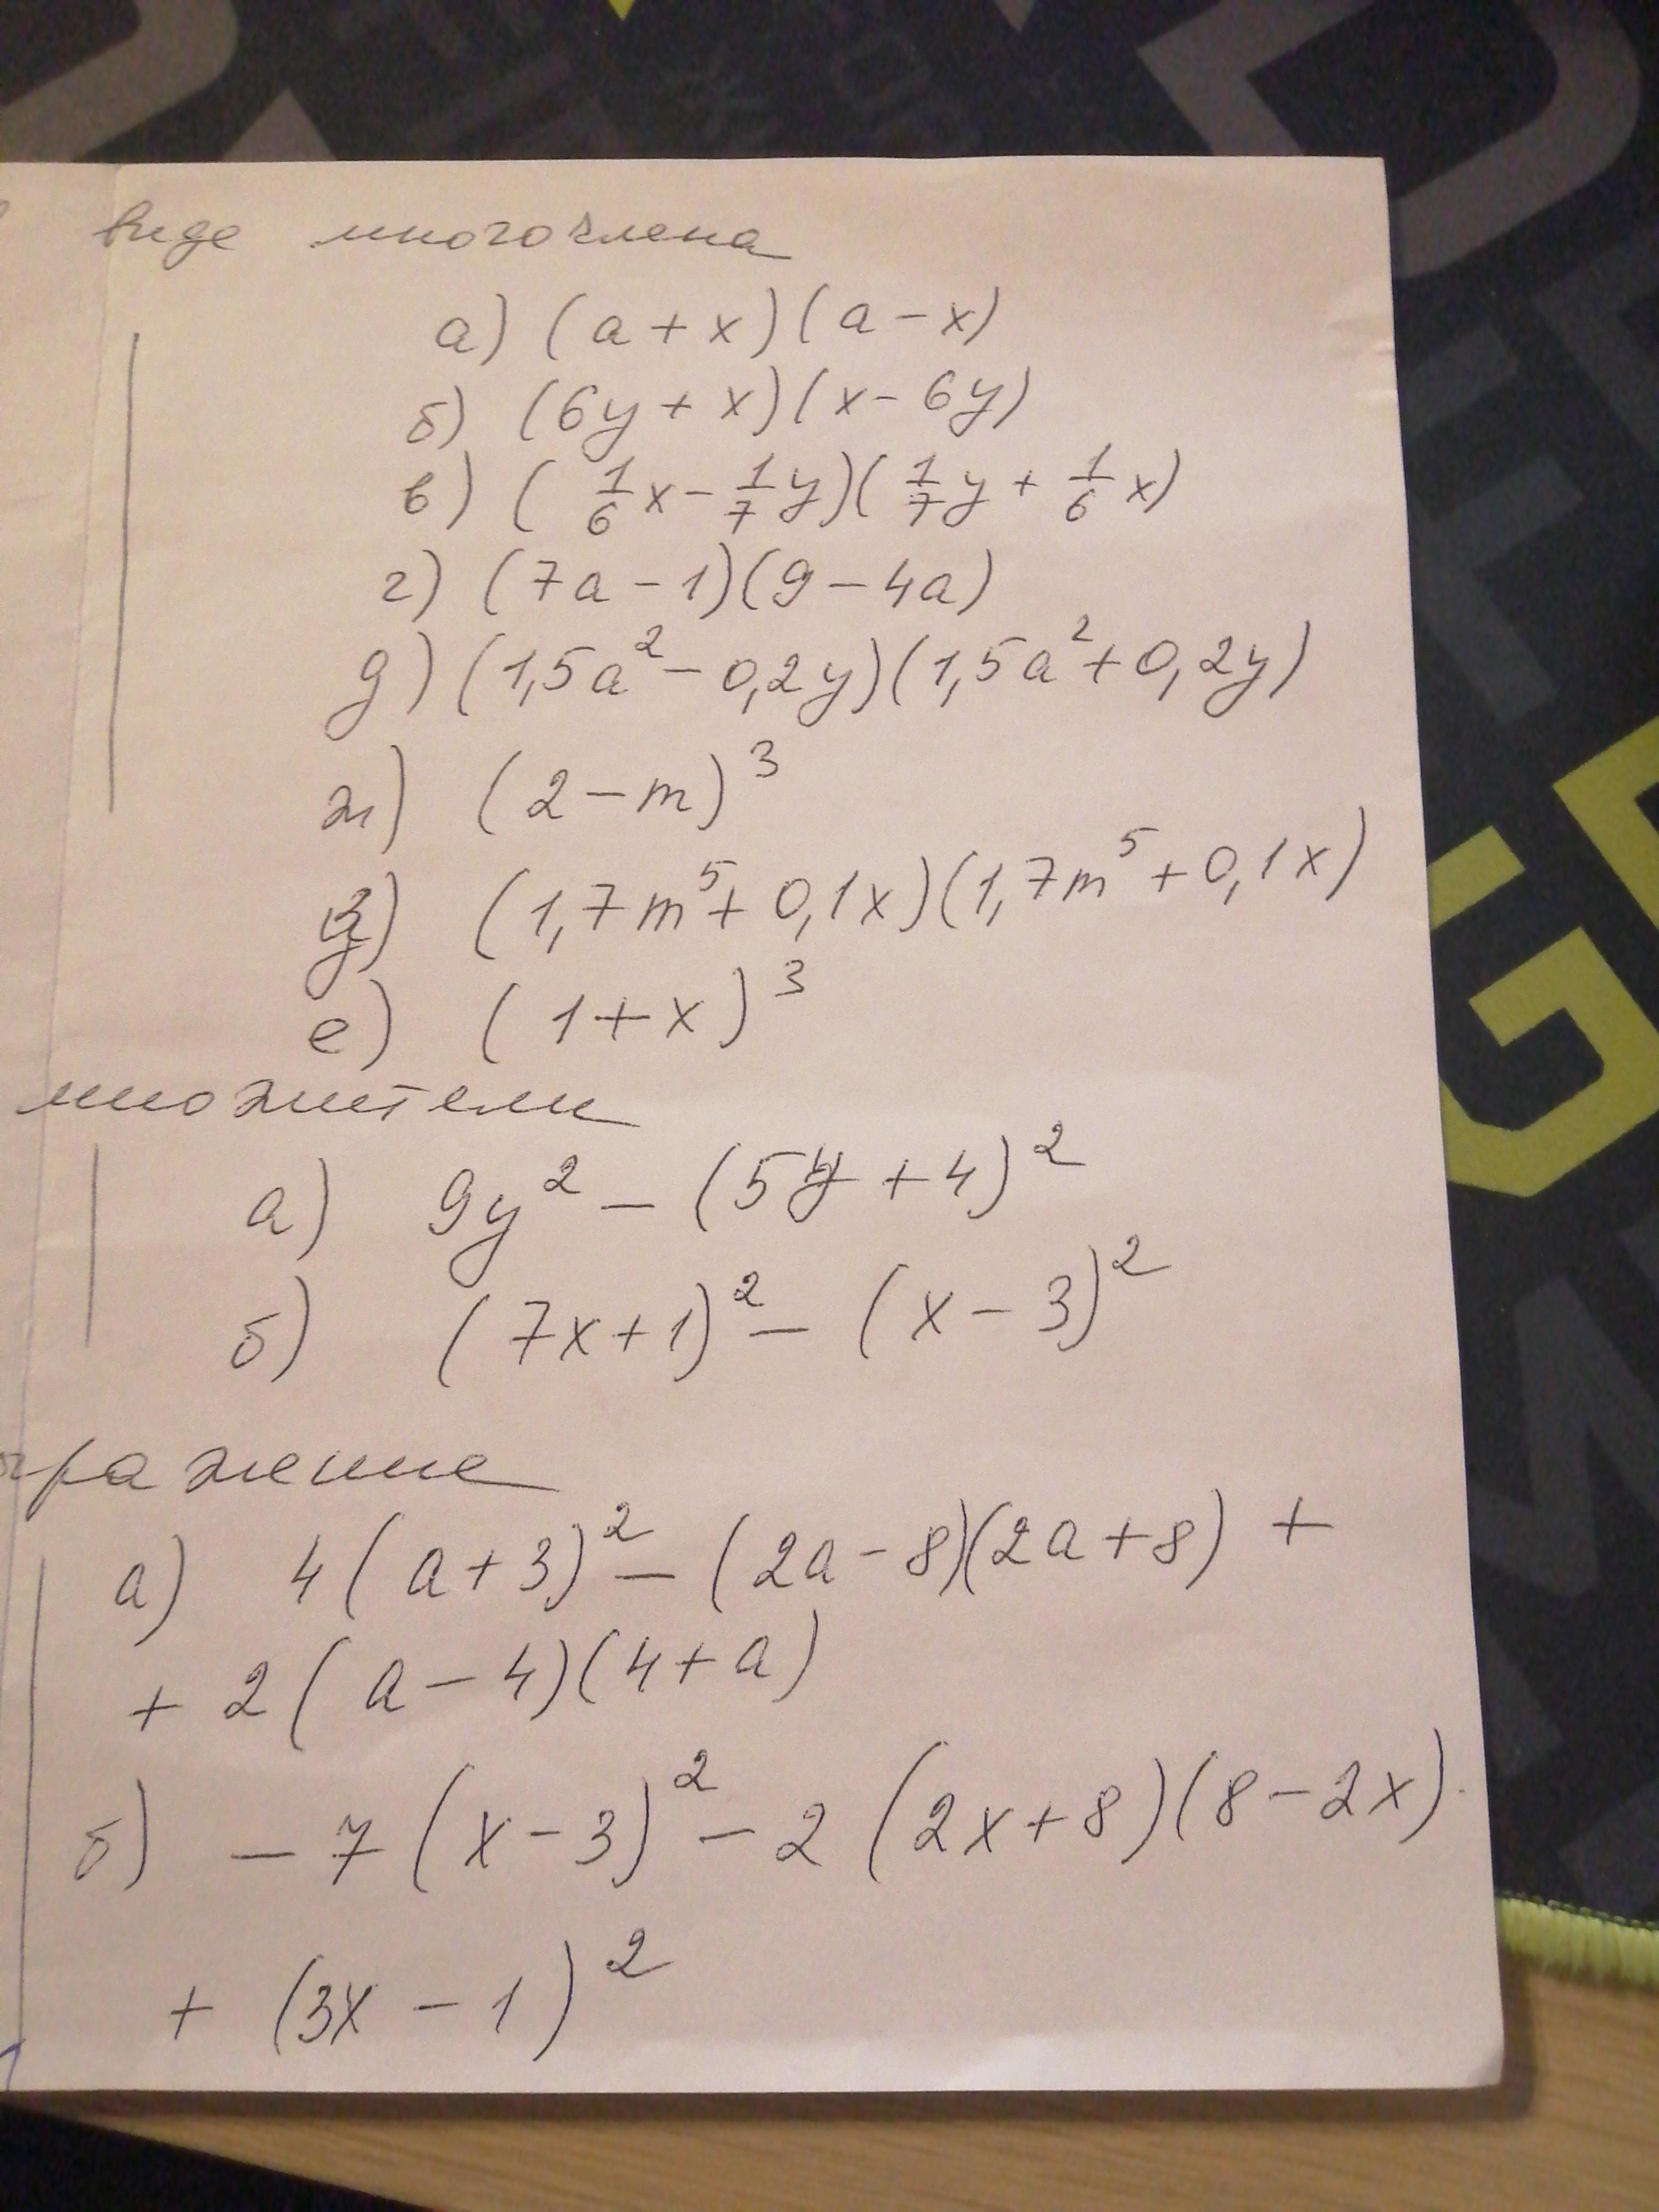 виде многочлена
а) (a + x)(a - x)
б) (6y + x)(x - 6y)
в) (1/6 x - 1/7 y)(1/7 y + 1/6 x)
г) (7a - 1)(9 - 4a)
д) (1,5a² - 0,2y)(1,5a² + 0,2y)
ж) (2 - m)³
з) (1,7m⁵ + 0,1x)(1,7m⁵ + 0,1x)
е) (1 + x)³
множители
а) 9y² - (5y + 4)²
б) (7x + 1)² - (x - 3)²
ражение
а) 4(a + 3)² - (2a - 8)(2a + 8) +
+ 2(a - 4)(4 + a)
б) - 7(x - 3)² - 2(2x + 8)(8 - 2x)
+ (3x - 1)²